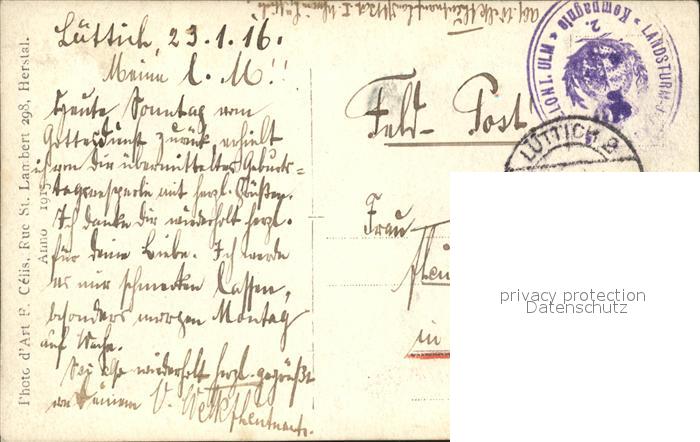 Lüttich, 23.1.16.
Meine l. M!!
Heute Sonntag vom
Gottesdienst zurück, erhielt
ich von dir übermitteltes Geburts=
mit herzl. Grüßen.
Ich danke dir wiederholt herzl.
für deine Liebe. Ich werde
es mir schmecken lassen,
besonders morgen Montag
auf Wache.
Sei also wiederholt herzl. gegrüßt
von deinem
Feld- Post
Frau
in
LANDSTURM-
LLON I. ULM
2. Kompagnie
LÜTTICH 2
Photo d'Art F. Célis, Rue St. Lambert 298, Herstal.
Anno 1915
privacy protection
Datenschutz